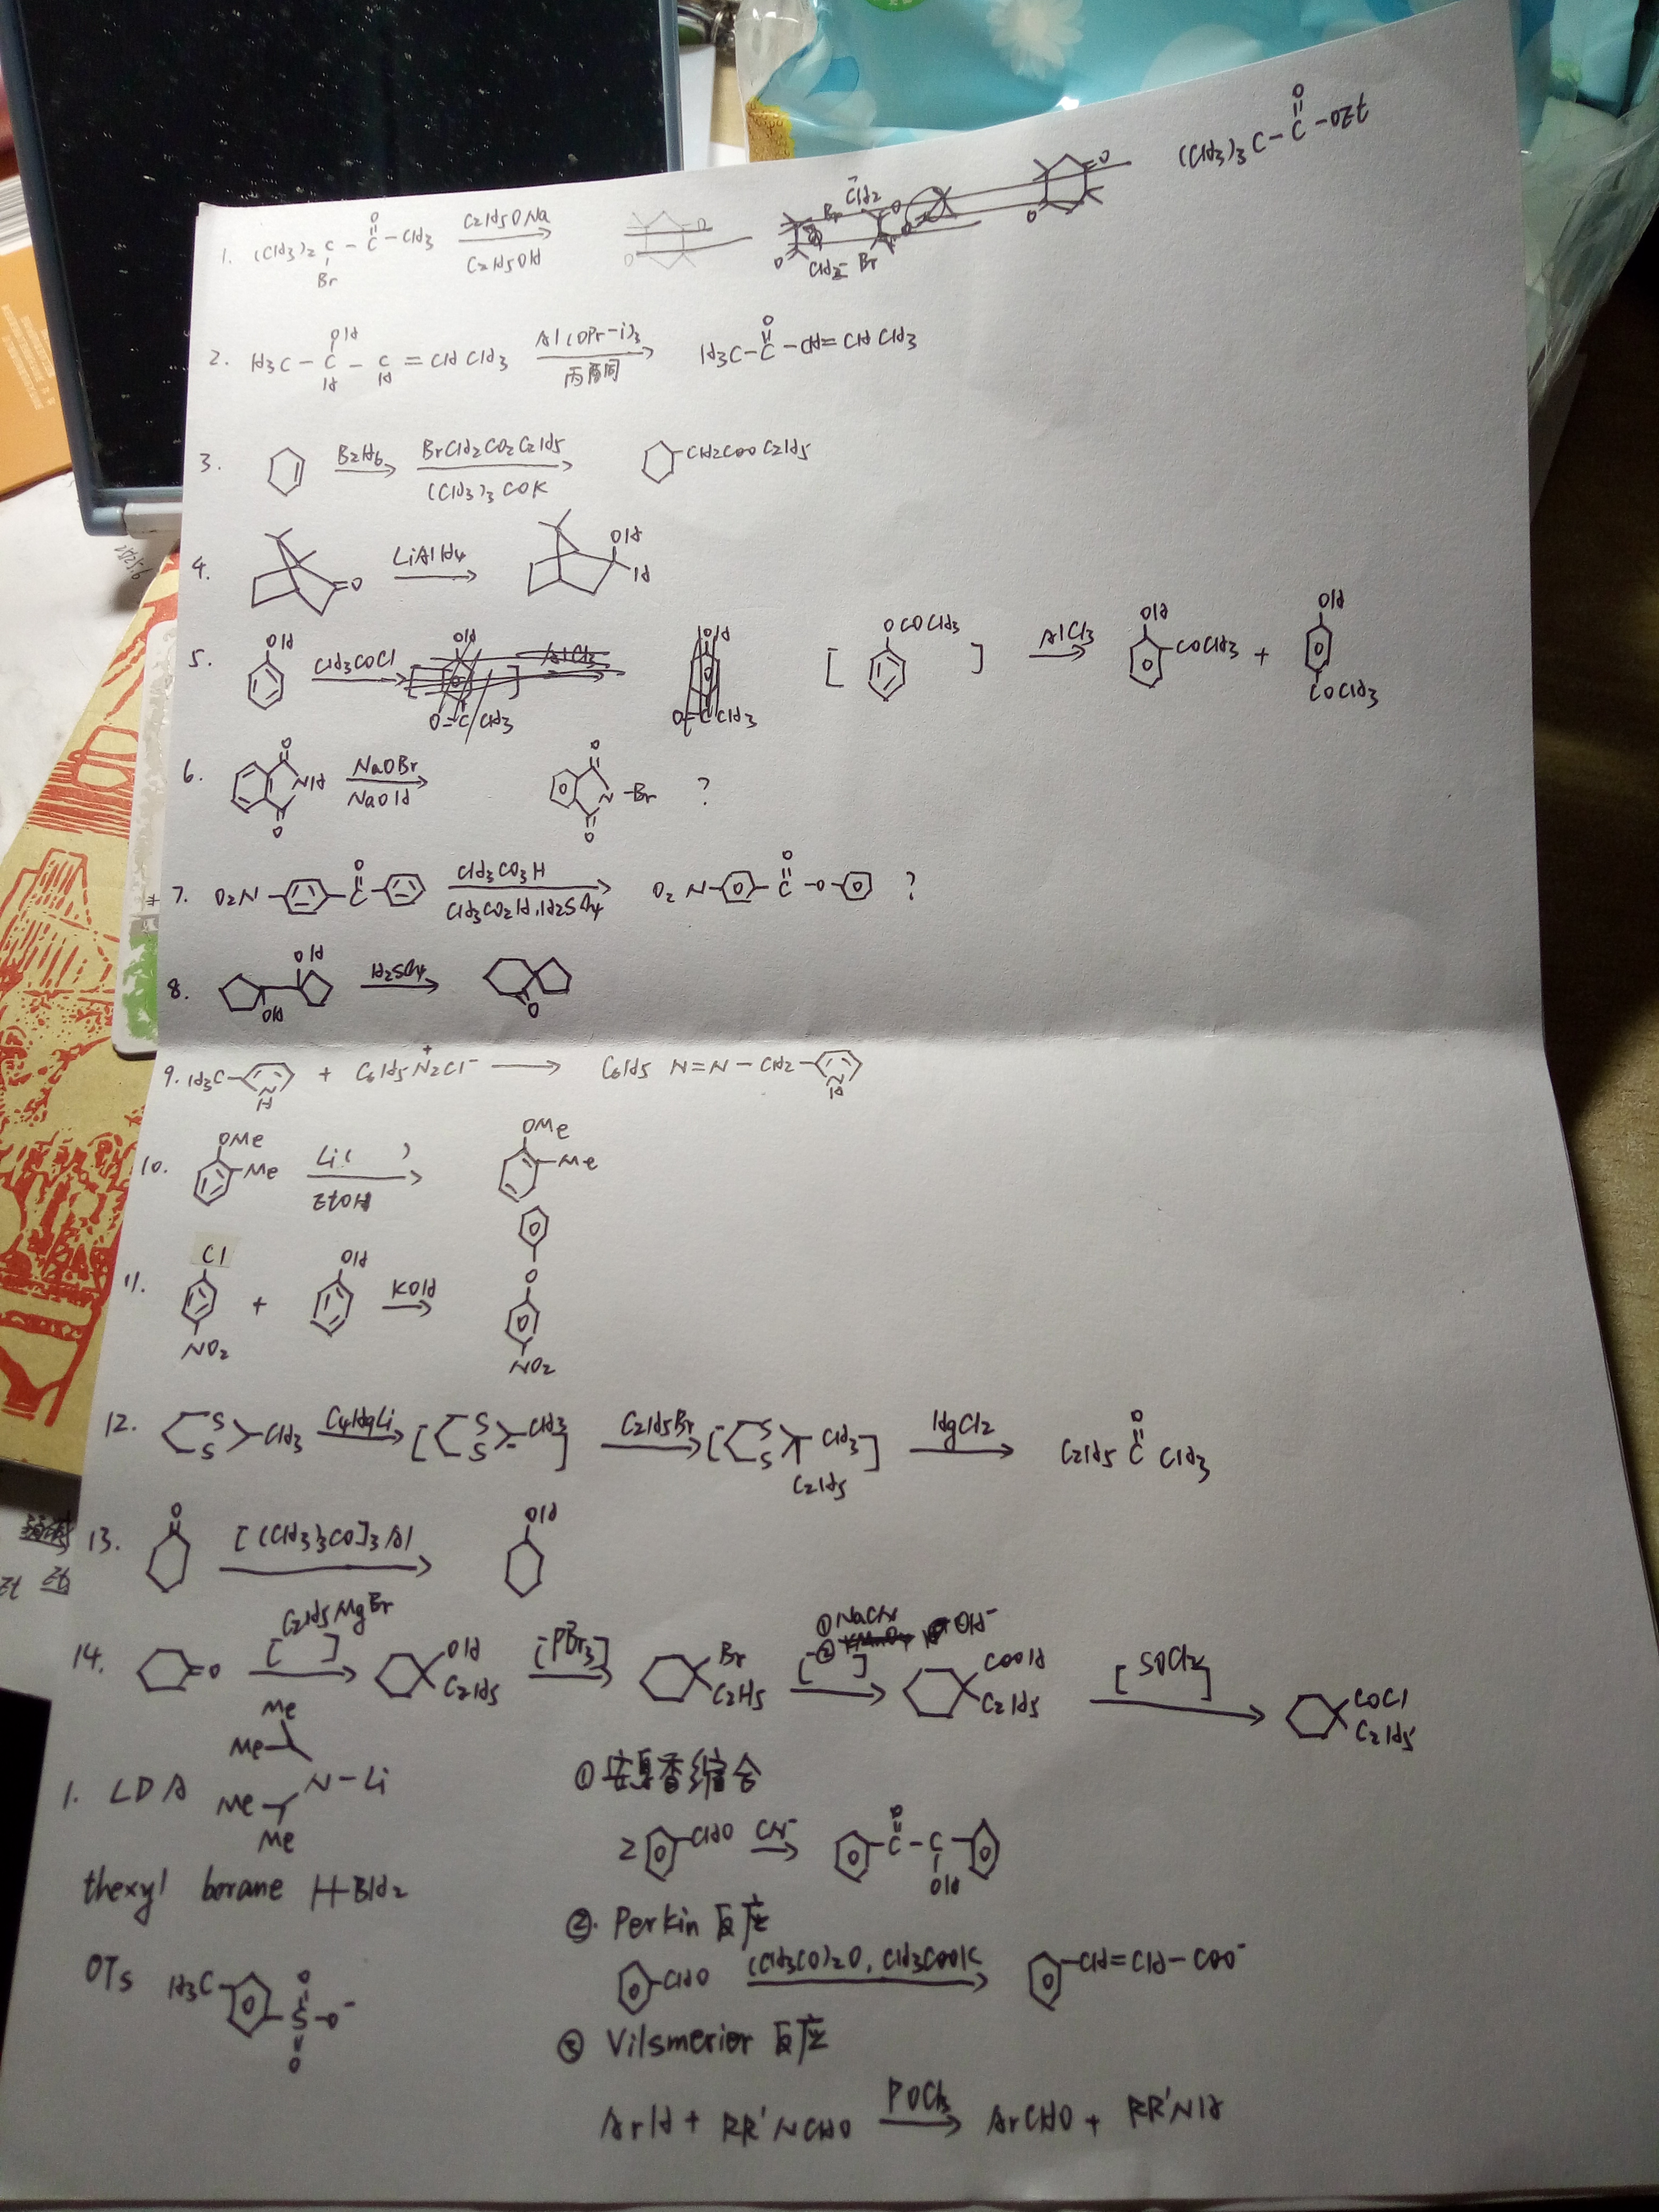 1. (CH3)2 C - C - CH3 C2H5ONa (CH3)3 C - C - OEt
O O
Br C2H5OH
2. H3C - C - C = CH CH3 Al(OPr-i)3 H3C - C - CH = CH CH3
OH O
H H 丙酮
3. B2H6 BrCH2CO2C2H5 CH2COOC2H5
(CH3)3COK
4. O LiAlH4 OH
H
5. OH CH3COCl [ OCOCH3 ] AlCl3 OH COCH3 + OH COCH3
6. O NH O NaOBr O N - Br O ?
NaOH
7. O2N C O CH3CO3H O2N C O - O - ?
CH3CO2H, H2SO4
8. OH OH H2SO4 O
9. H3C N H + C6H5N2+Cl- C6H5 N=N - CH2 N H
10. OMe Me Li( ) OMe Me
EtOH
11. Cl NO2 + OH KOH O NO2
12. S S CH3 C4H9Li [ S S - CH3 ] C2H5Br [ S S CH3 C2H5 ] HgCl2 C2H5 C O CH3
13. O [(CH3)3CO]3Al OH
14. O [ C2H5MgBr ] OH C2H5 [PBr3] Br C2H5 [ ①NaCN ② OH- ] COOH C2H5 [SOCl2] COCl C2H5
1. LDA Me Me N-Li Me Me
thexyl borane BH2
OTs H3C S O O O-
① 安息香缩合
2 CHO CN- C O - C OH
② Perkin 反应
CHO (CH3CO)2O, CH3COOK CH=CH-COO-
③ Vilsmerier 反应
ArH + RR'NCHO POCl3 ArCHO + RR'NH